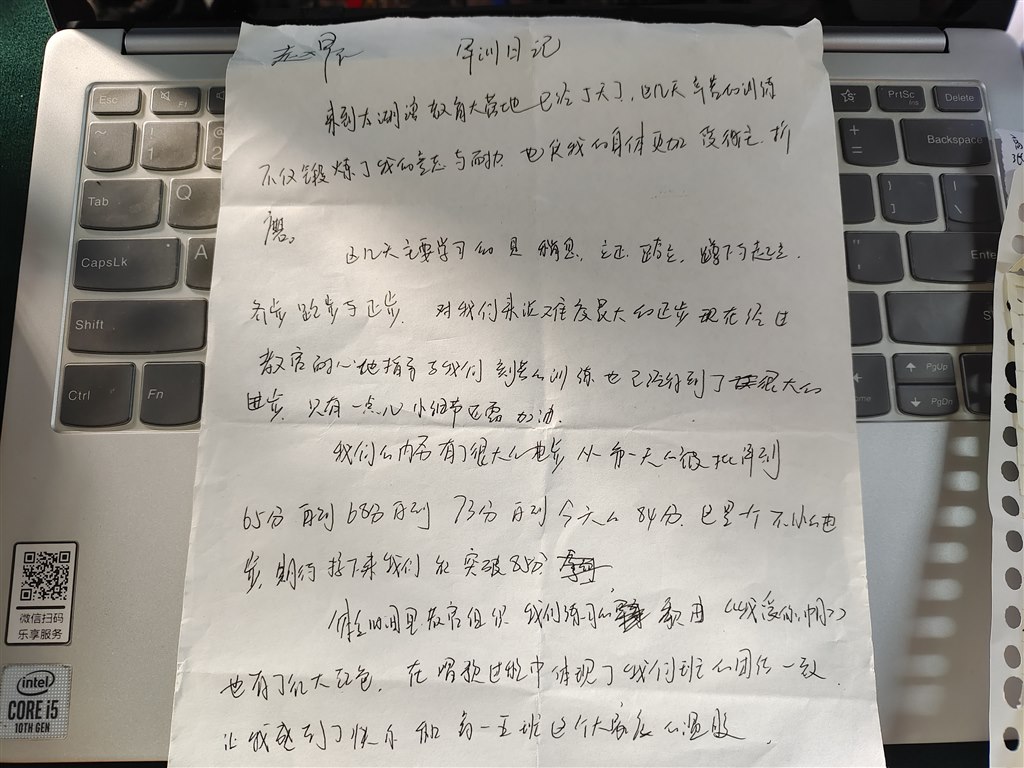 军训日记
来到太湖湾教育大营地已经5天了,这几天辛苦的训练
不仅锻炼了我的意志与耐力 也使我的身体更加 受得住折
磨。
这几天主要学习的是 稍息,立正 跨立,蹲下与起立
齐步 跑步与正步. 对我们来说难度最大的正步现在经过
教官的心地指导与我们刻苦的训练也已经得到了很大的
进步,只有一点儿小细节还需加油.
我们的内务有了很大的进步 从第一天的被批评到
65分 再到 68分 再到 73分 再到 今天的 84分. 也是个不小的进
步,期待接下来我们能突破85分
休息时间里教官组织我们练习的 歌曲《我爱你中国》
也有了很大起色. 在唱歌过程中体现了我们班的团结一致
让我感到了快乐 和 高一五班这个大家庭的温暖.
Esc
F1
PrtSc
Delete
Backspace
Tab
Q
CapsLk
A
Enter
Shift
Ctrl
Fn
PgUp
PgDn
微信扫码
乐享服务
intel
CORE i5
10TH GEN